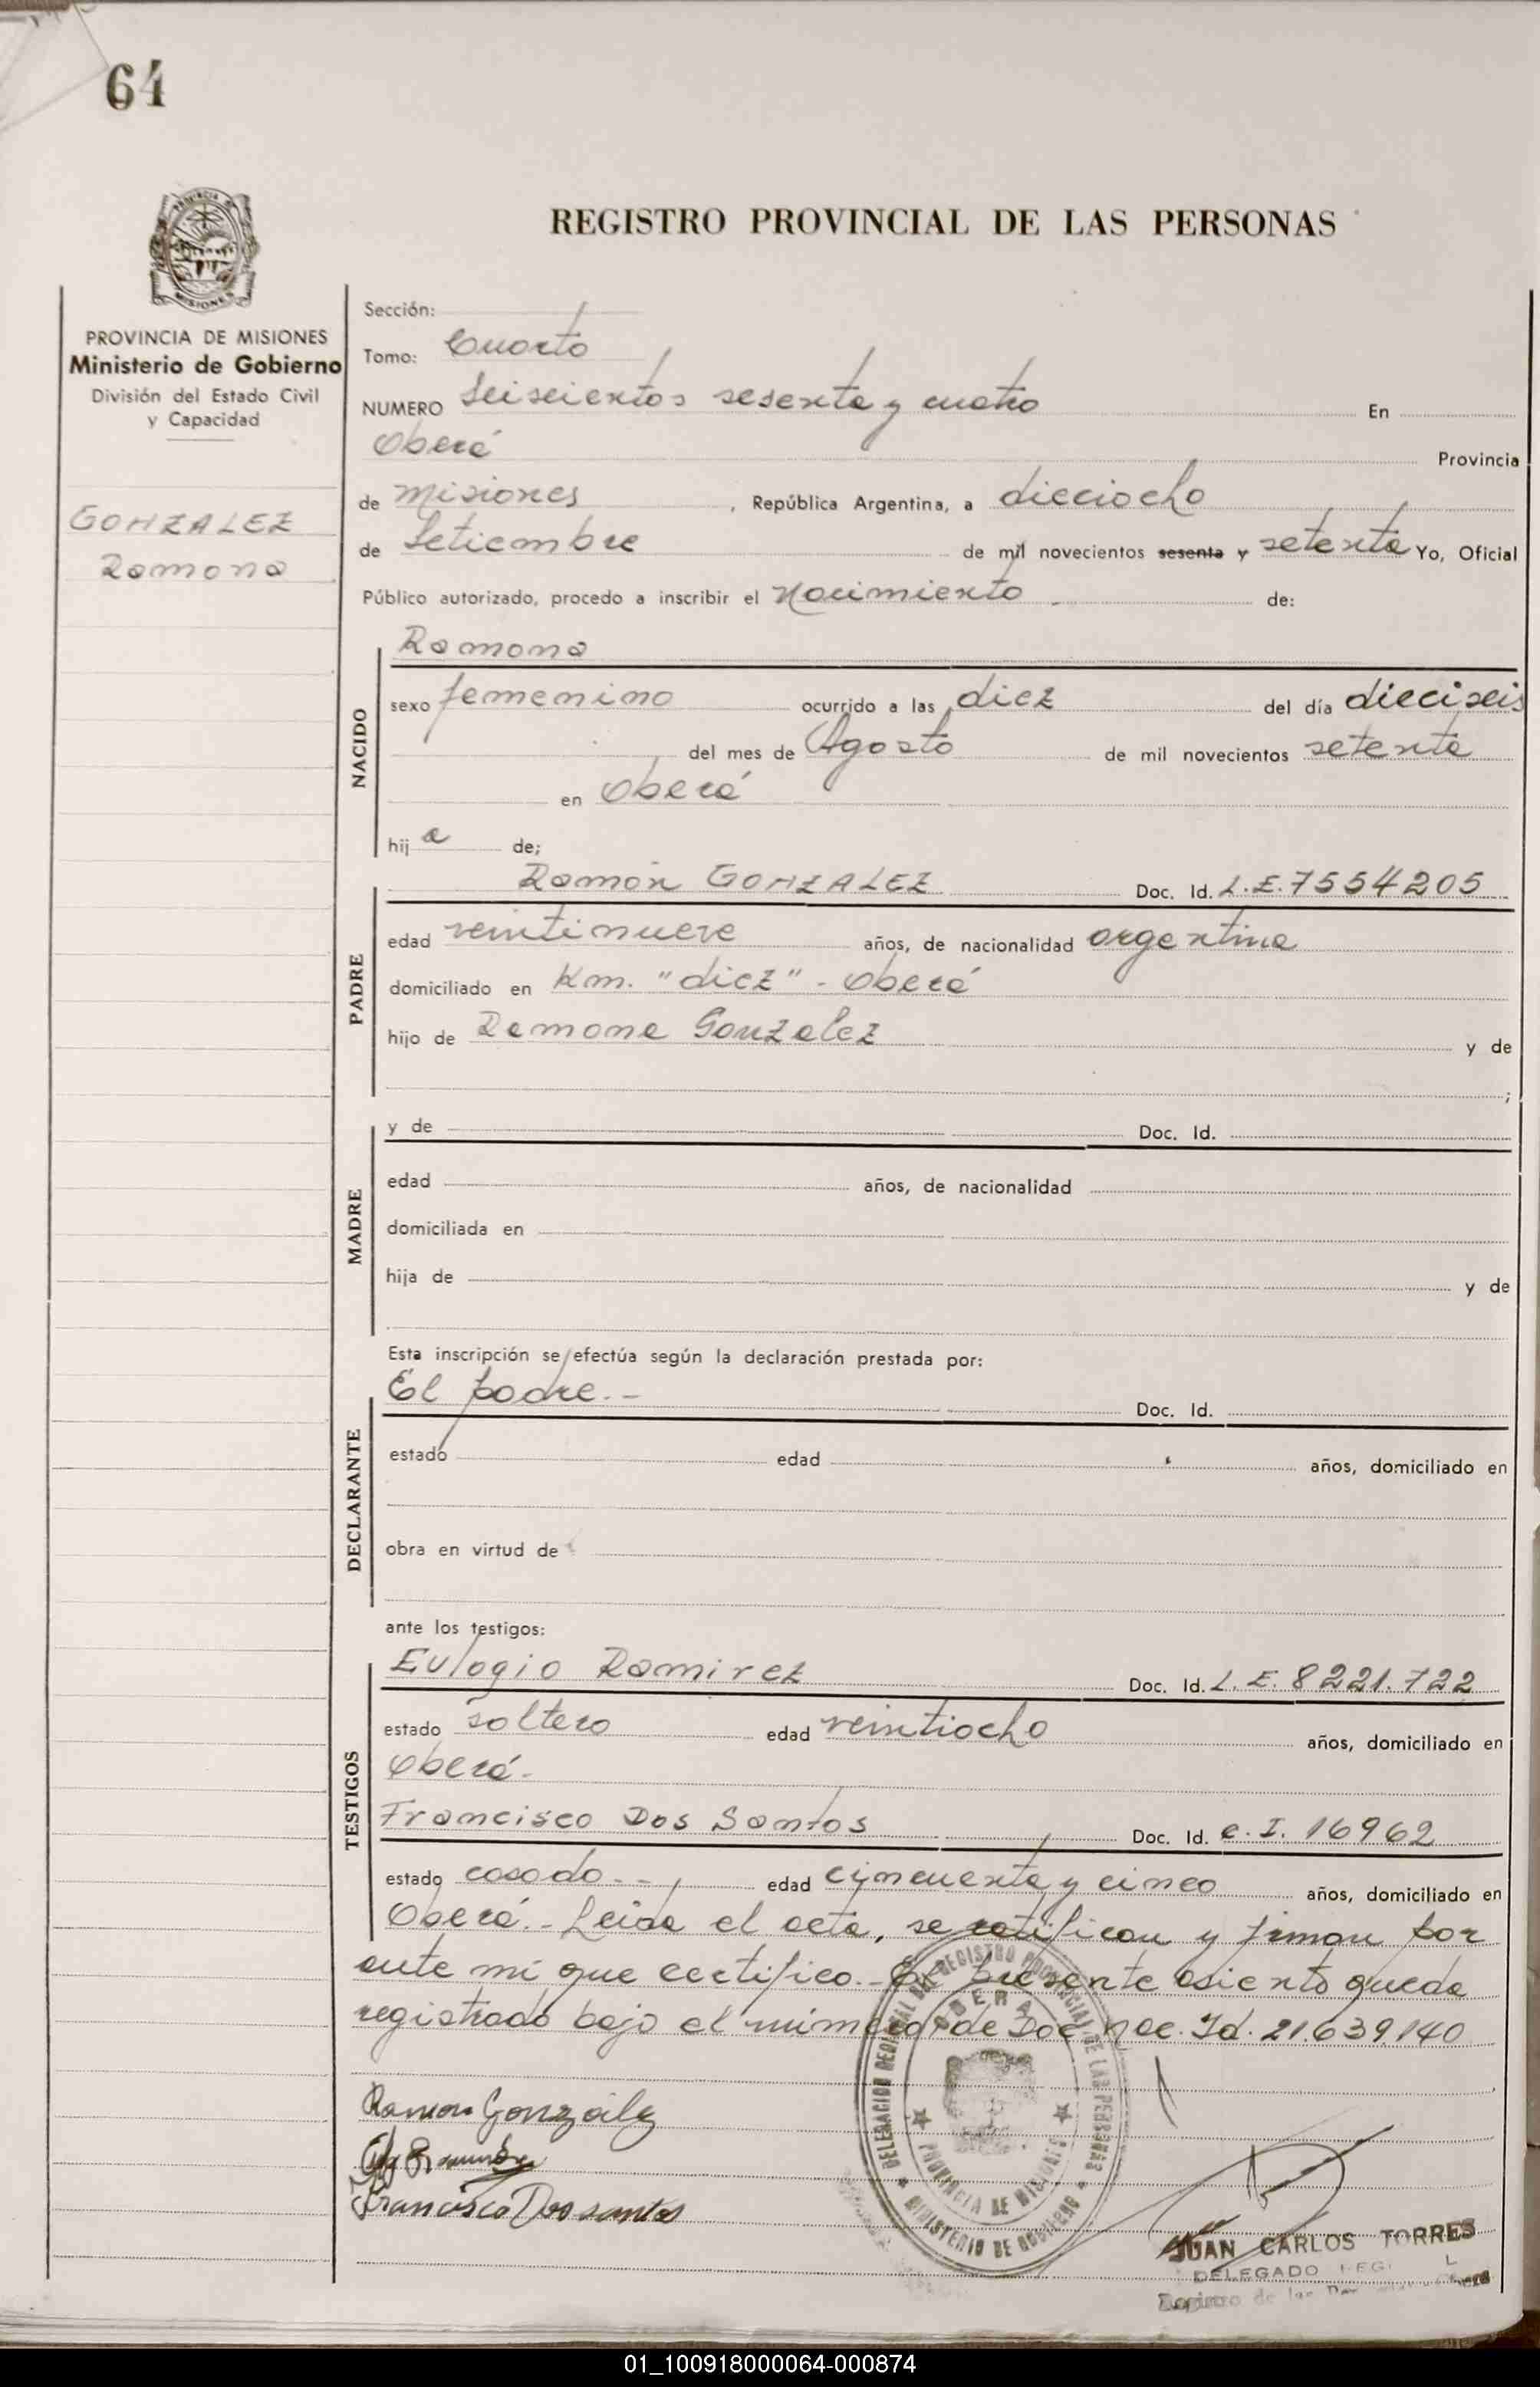 64
PROVINCIA DE MISIONES
Ministerio de Gobierno
División del Estado Civil
y Capacidad
GONZALEZ
Ramona
REGISTRO PROVINCIAL DE LAS PERSONAS
Sección:
Tomo: Cuarto
NUMERO Seiscientos sesenta y cuatro En
Oberá Provincia
de Misiones, República Argentina, a dieciocho
de Setiembre de mil novecientos sesenta y setenta Yo, Oficial
Público autorizado, procedo a inscribir el Nacimiento de:
NACIDO
Ramona
sexo femenino ocurrido a las diez del día dieciseis
del mes de Agosto de mil novecientos setenta
en Oberá
hij a de;
PADRE
Ramón GONZALEZ Doc. Id. L.E. 7554205
edad veintinueve años, de nacionalidad argentina
domiciliado en Km. "diez" - Oberá
hijo de Ramona Gonzalez y de
;
MADRE
y de Doc. Id.
edad años, de nacionalidad
domiciliada en
hija de y de
Esta inscripción se efectúa según la declaración prestada por:
DECLARANTE
El padre.- Doc. Id.
estado edad años, domiciliado en
obra en virtud de
ante los testigos:
TESTIGOS
Eulogio Ramirez Doc. Id. L.E. 8221.722
estado soltero edad veintiocho años, domiciliado en
Oberá.
Francisco Dos Santos Doc. Id. C.I. 16962
estado casado.- edad cincuenta y cinco años, domiciliado en
Oberá.- Leida el acta, se ratifican y firman por
ante mi que certifico.- El presente asiento queda
registrado bajo el número de Doc. Nac. Id. 21.639.140
Ramon González
Francisco Dos santos
DELEGACION REGIONAL DEL REGISTRO PROVINCIAL DE LAS PERSONAS
OBERA
PROVINCIA DE MISIONES
MINISTERIO DE GOBIERNO
JUAN CARLOS TORRES
DELEGADO
Registro de las
01_100918000064-000874